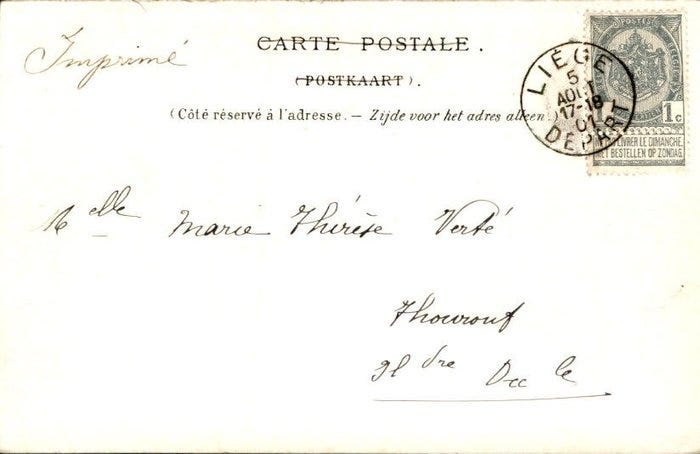 Imprimé
CARTE POSTALE.
(POSTKAART).
(Côté réservé à l'adresse. — Zijde voor het adres alleen.)
POSTES
LIÉGE
5
AOUT
17-18
01
DÉPART
1c
LIVRER LE DIMANCHE
NIET BESTELLEN OP ZONDAG
Melle Marie Thérèse Verté
Thourout